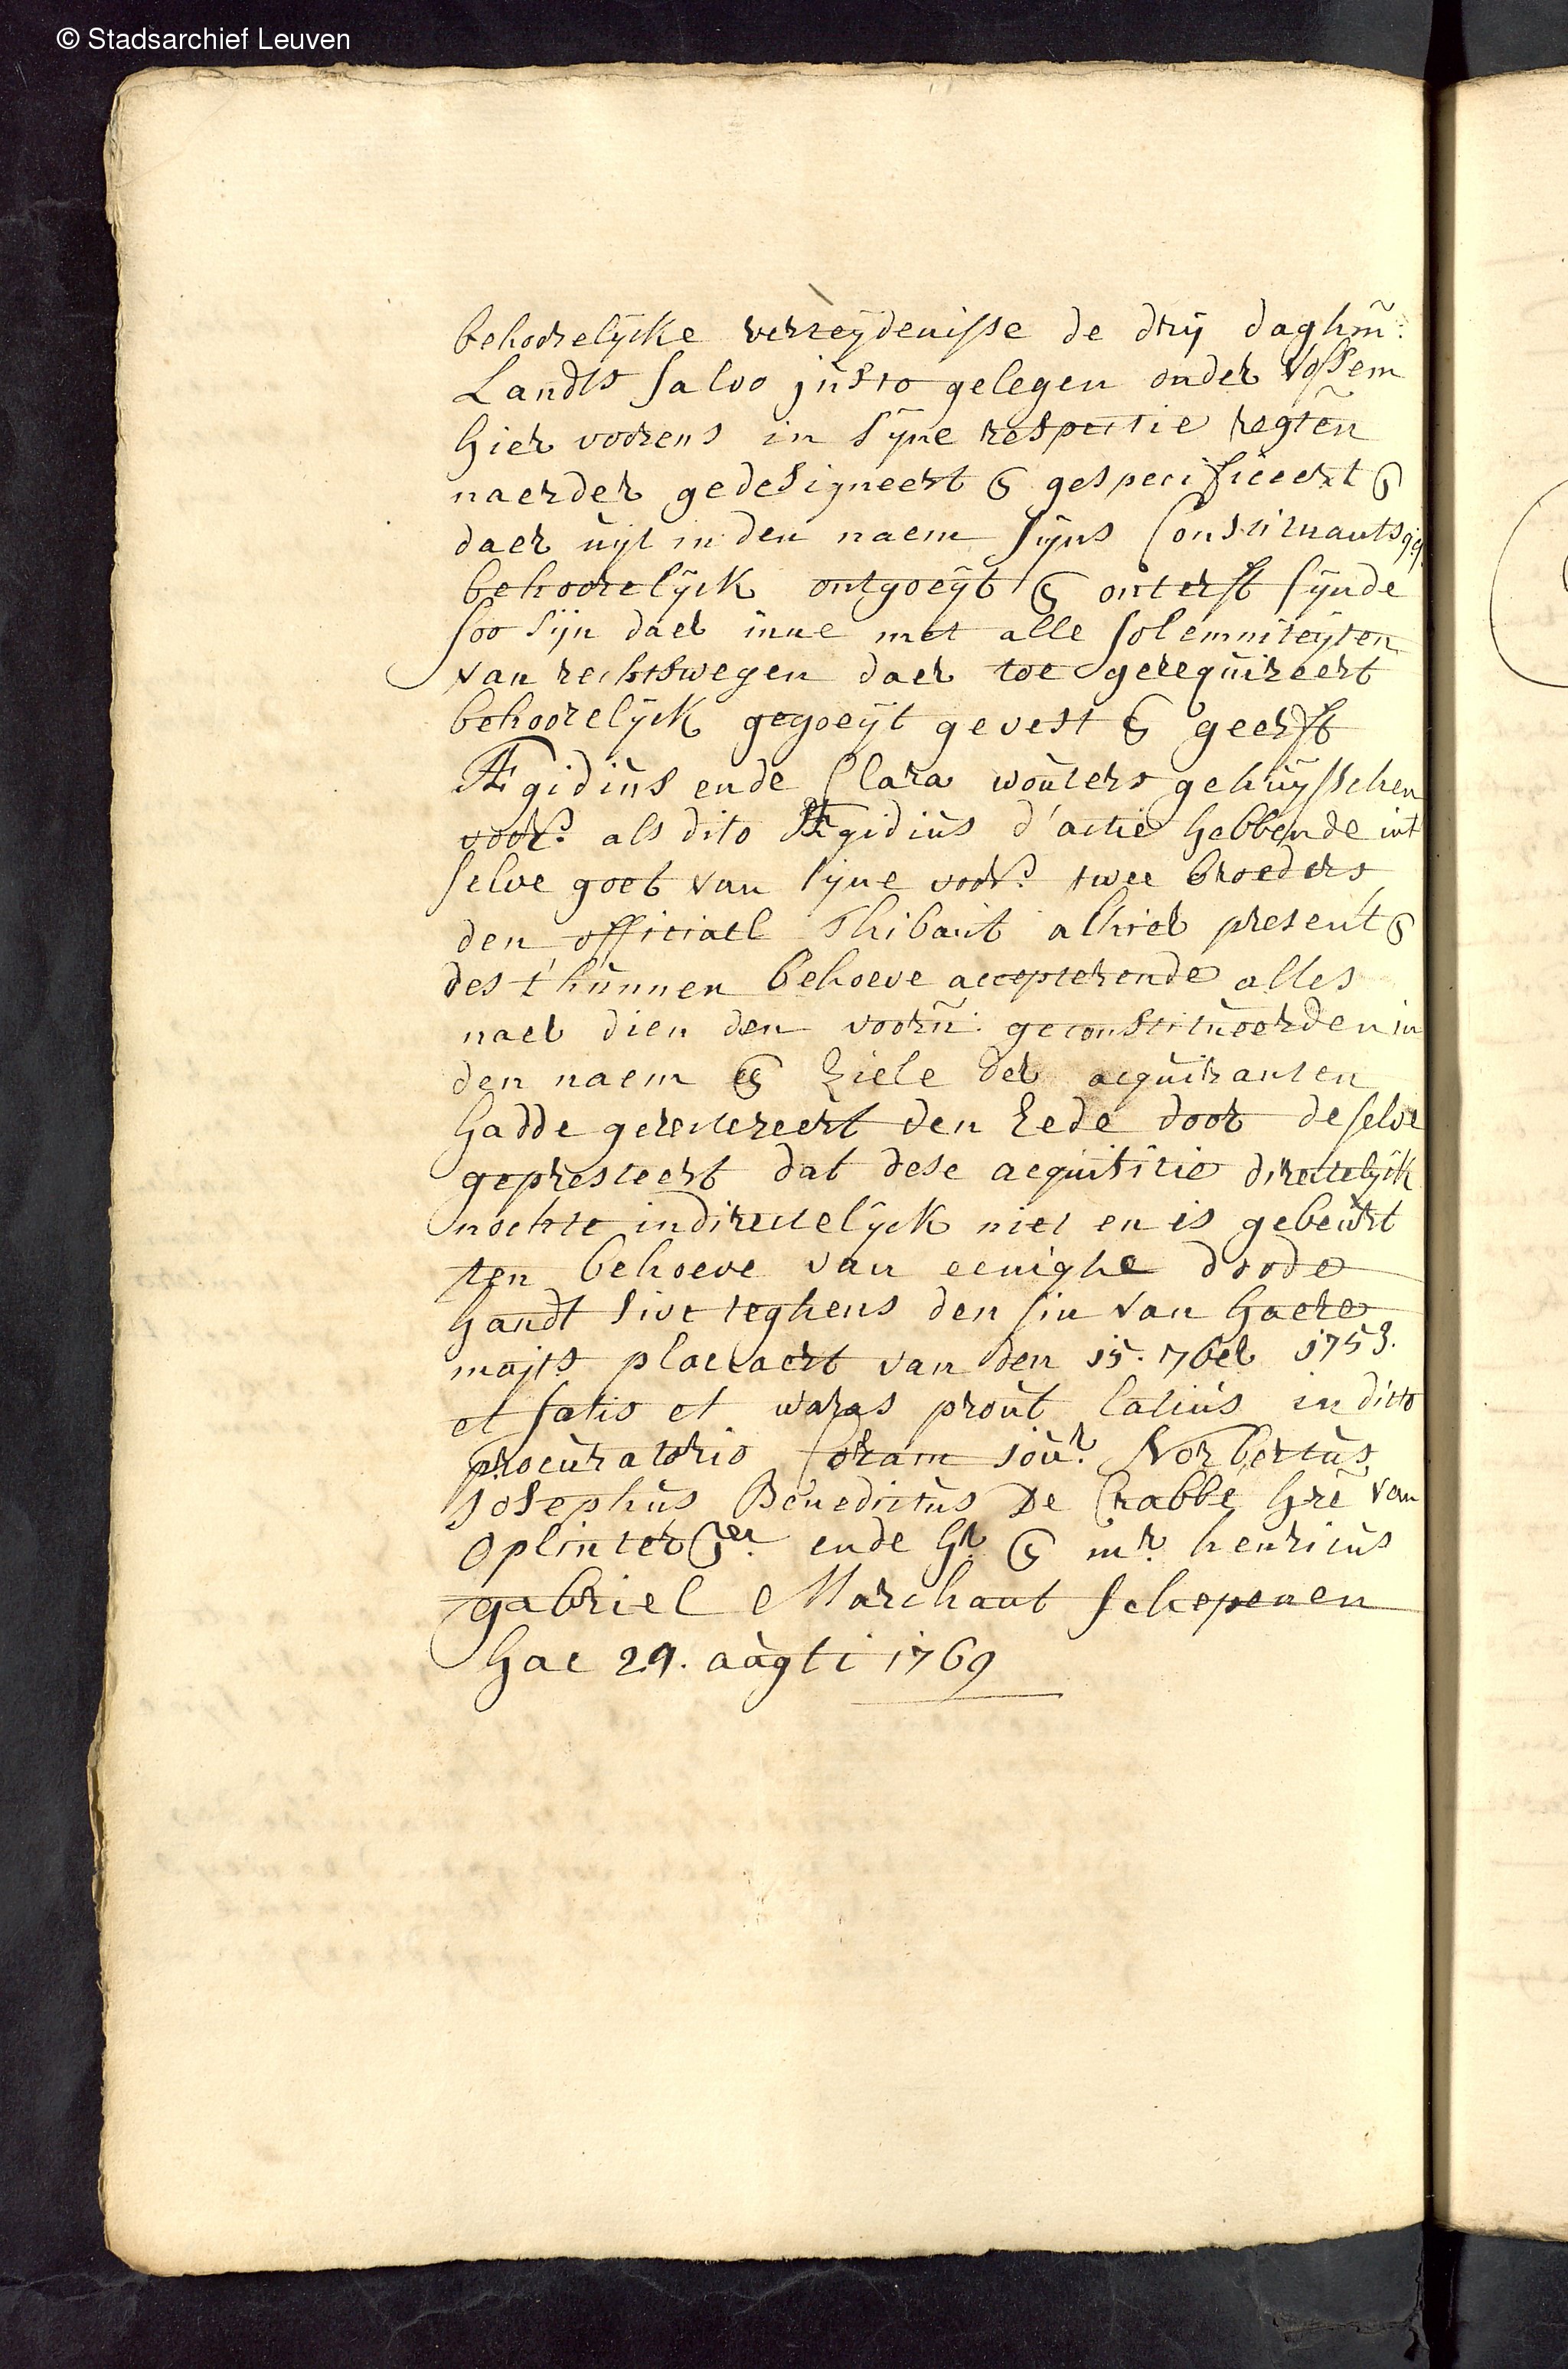 © Stadsarchief Leuven
behoorelijcke verteijdenisse de drij daghm̃:
Landts salvo justo gelegen onder Vossem
hier voorens in sijne respective regten
naerder gedesigneert & gespecificeert &
daer uijt in den naem sijns Constituants qq
behoorelijck ontgoeijt & onterft sijnde
soo sijn daer inne met alle solemniteijten
van rechtswegen daer toe gerequireert
behoorelijck gegoeijt gevest & geerft
Ægidius ende Clara wouters gehuijsschen
voors. als dito Ægidius d'actie hebbende int
selve goet van sijne voors. twee broeders
den officiael Thibaut alhier present &
des t'hunnen behoeve accepterende alles
naer dien den voorn̄: geconstitueerden in
den naem & ziele der acquiranten
hadde gereitereert den Eede door deselve
gepresteert dat dese acquisitie directelijck
nochte indirectelijck niet en is gebeurt
ten behoeve van eenighe doode
handt sive teghens den sin van haere
majts. placcaert van den 15. 7ber 1753.
et satis et waras prout latius in dicto
procuratorio Coram jour. Norbertus
Josephus Benedictus De Crabbé hre van
Oplinter &er. ende hr. & mr. henricus
gabriel Marchant schepenen
hac 29. augti 1769